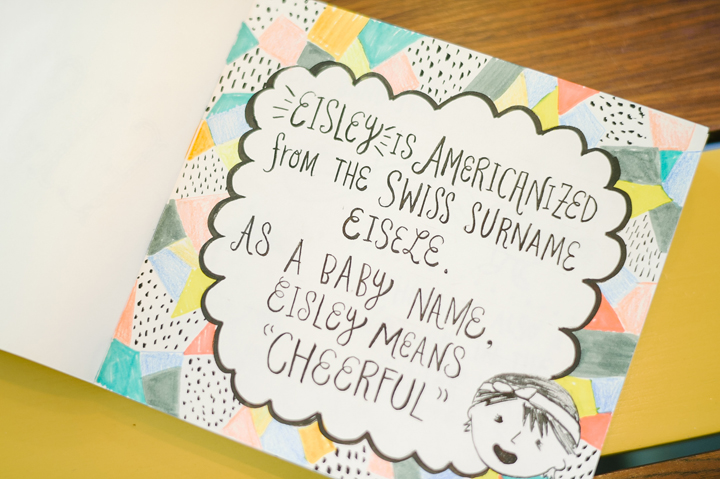 EISLEY IS AMERICANIZED
from THE SWISS SURNAME
EISELE.
AS A BABY NAME,
EISLEY MEANS
"CHEERFUL"